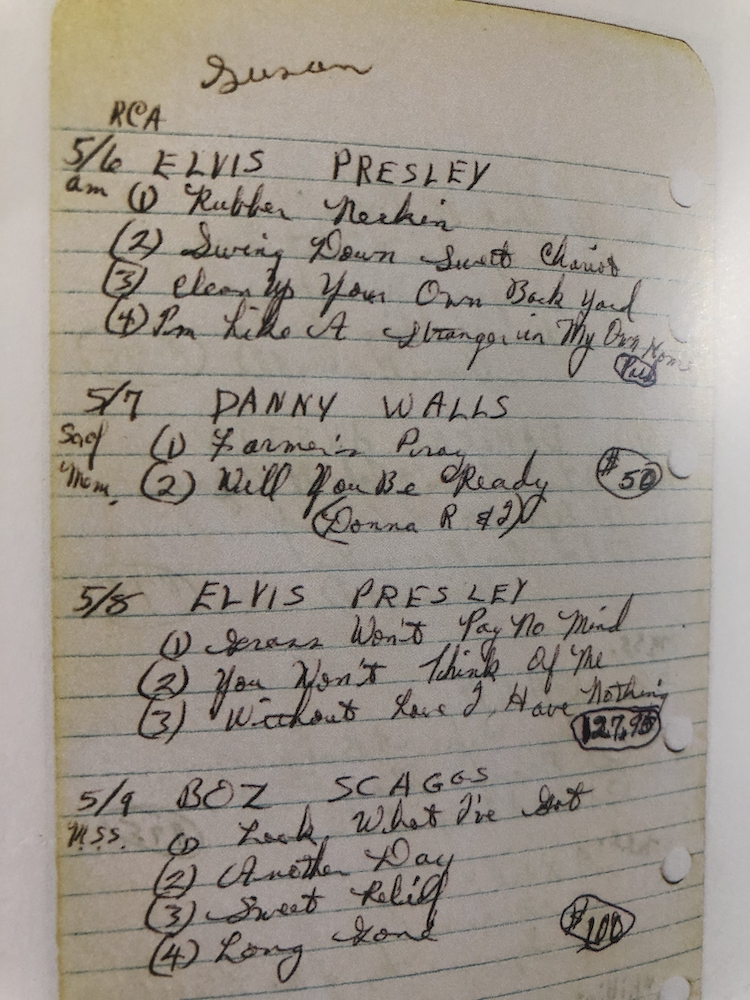 Susan
RCA
5/6 ELVIS PRESLEY
am (1) Rubber Neckin
(2) Swing Down Sweet Chariot
(3) Clean Up Your Own Back Yard
(4) I'm Like A Stranger in My Own Home
Paid
5/7 DANNY WALLS
(1) Farmer's
Mom. (2) Will You Be Ready $50
(Donna R #2)
5/8 ELVIS PRESLEY
(1) Grass Won't Pay No Mind
(2) You Won't Think Of Me
(3) Without Love I Have Nothing
127.95
5/9 BOZ SCAGGS
M.S.S. (1) Look What I've Got
(2) Another Day
(3) Sweet Relief
(4) Long Gone $100